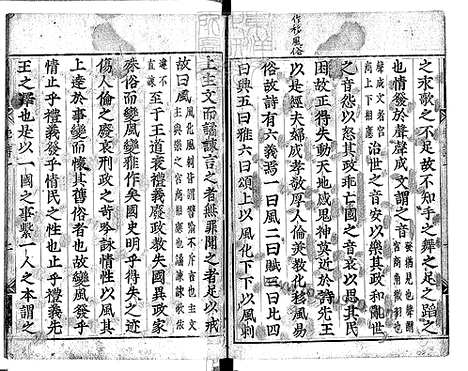 作移風俗
之永歌之不足故不知手之舞之足之蹈之
也情發於聲聲成文謂之音發猶見也聲謂宮商角徵羽也
聲成文者宮商上下相應治世之音安以樂其政和亂世
之音怨以怒其政乖亡國之音哀以思其民
困故正得失動天地感鬼神莫近於詩先王
以是經夫婦成孝敬厚人倫美教化移風易
俗故詩有六義焉一曰風二曰賦三曰比四
曰興五曰雅六曰頌上以風化下下以風刺
上主文而譎諫言之者無罪聞之者足以戒
故曰風風化風刺皆謂譬喻不斥言也主文主與樂之宮商相應也譎諫詠歌依
違不直諫至于王道衰禮義廢政教失國異政家
殊俗而變風變雅作矣國史明乎得失之迹
傷人倫之廢哀刑政之苛吟詠情性以風其
上達於事變而懷其舊俗者也故變風發乎
情止乎禮義發乎情民之性也止乎禮義先
王之澤也是以一國之事繫一人之本謂之